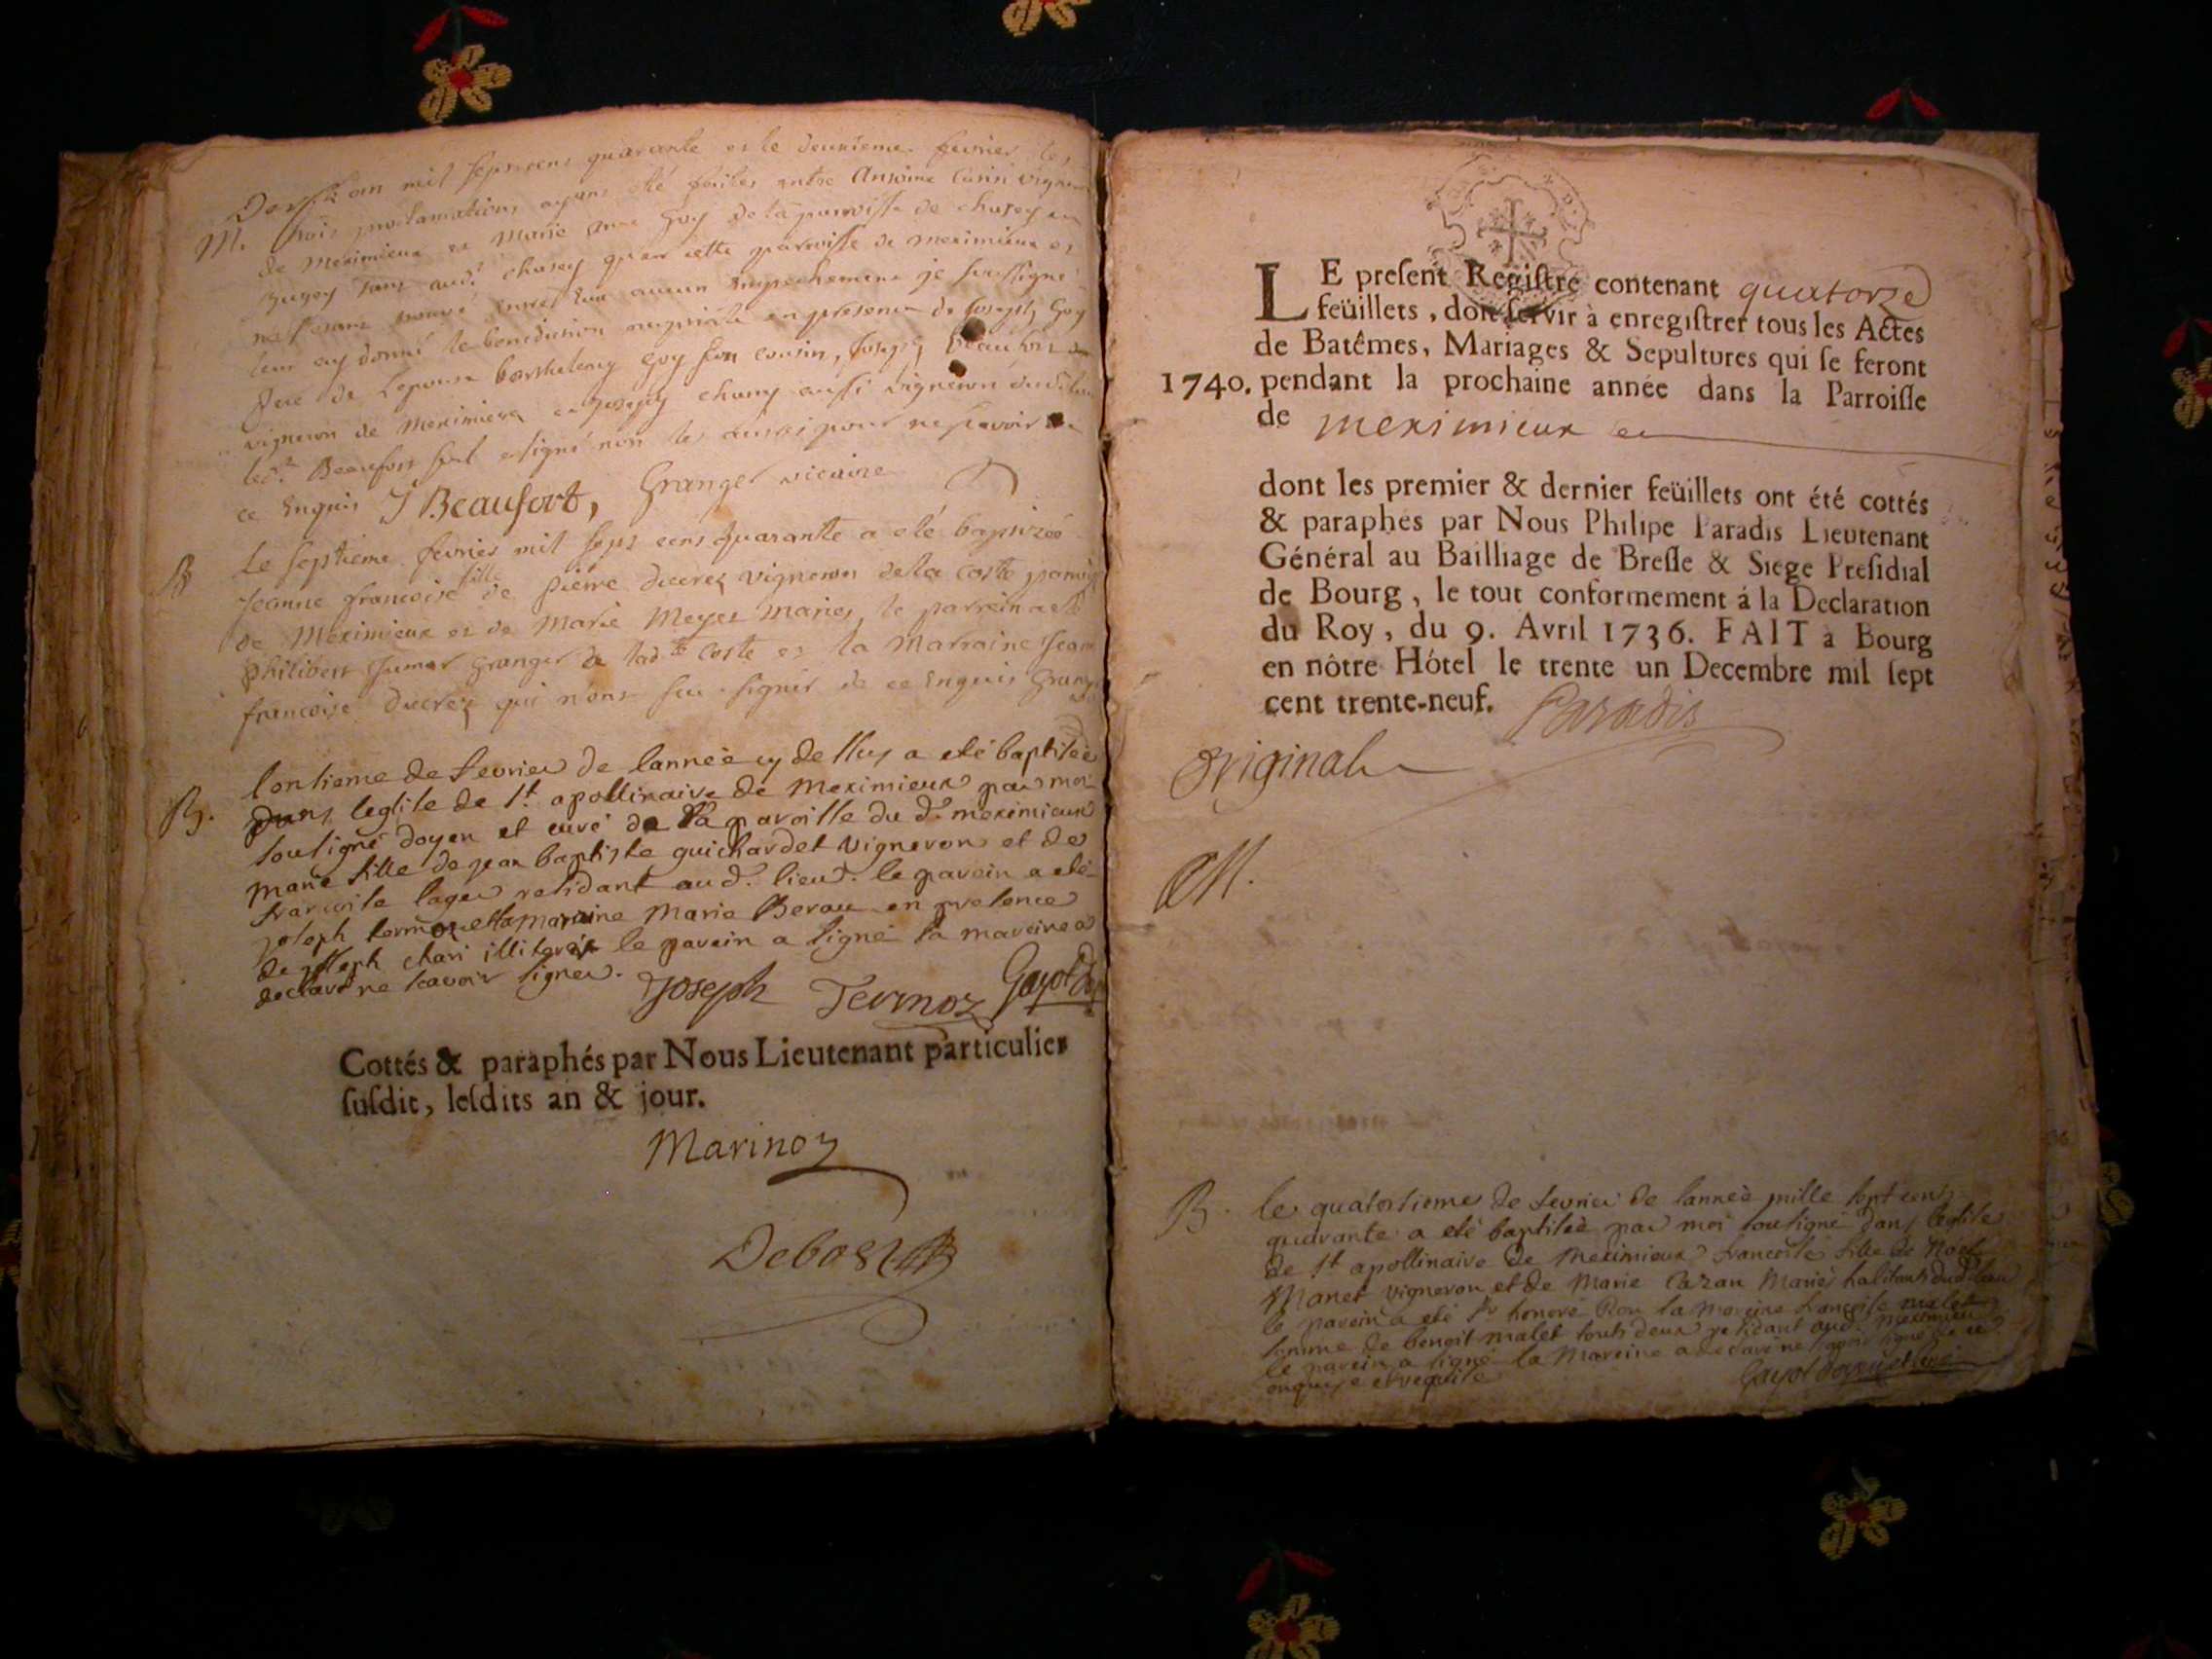 an mil sept cens quarante et le deuxieme fevrier les
M. trois proclamations ayant été faites entre Antoine vigneron
de Meximieux et Marie Anne Goy de la parroisse de chasey en
Bugey tant aud.t chasey qu'en cette parroisse de meximieux et
ne s'etant trouvé entre Eux aucun Empechement je soussigné
leur ay donné la benediction nuptiale en presence de Joseph Goy
pere de Lepouse barthelemy Goy son cousin, Joseph Beaufort
vigneron de Meximieux et Joseph chany aussi vigneron dudit lieu
led.t Beaufort seul a signé non les autres pour ne sçavoir de
ce Enquis J Beaufort, Granger vicaire
B Le septieme fevrier mil sept cens quarante a eté baptizée
Jeanne francoise fille de pierre ducrez vigneron de la coste
de Meximieux et de Marie Meyer Mariés, le parrein a eté
philibert Granger de lad.te Coste et la Marraine Jeanne
francoise Ducrez qui n'ont sçu signer de ce Enquis Granger
B. lontieme de fevrier de lannée cy dessus a eté baptisée
dans leglise de s.t apollinaire de Meximieux par moi
soutigné doyen et curé de la paroisse du d. meximieux
marie fille de jean baptiste guichardet vigneron et de
francoise lager residant aud. lieu. le parein a eté
joseph termoz et la maraine Marie Berau en presence
de joseph chari illiteres le parein a signé la mareine a
declaré ne scavoir signer. Joseph Termoz Gayot
Cottés & paraphés par Nous Lieutenant particulier
susdit, lesdits an & jour.
Marinoz
Debost
LE present Registre contenant quatorze
feüillets, doit servir à enregistrer tous les Actes
de Batêmes, Mariages & Sepultures qui se feront
1740. pendant la prochaine année dans la Parroisse
de meximieux
dont les premier & dernier feüillets ont été cottés
& paraphés par Nous Philipe Paradis Lieutenant
Général au Bailliage de Bresse & Siege Presidial
de Bourg, le tout conformement á la Declaration
du Roy, du 9. Avril 1736. FAIT à Bourg
en nôtre Hôtel le trente un Decembre mil sept
cent trente-neuf. Paradis
Original
M.
B. le quatortieme de fevrier de lannée mille sept cent
quarante a eté baptisée par moi soutigné dans leglise
de s.t apollinaire de Meximieux francoise fille de Noel
Manet vigneron et de Marie Cazau Mariés habitants dud. lieu
le parein a eté s.r honoré la mareine francoise malet
femme de benoit malet touts deux residant aud. meximieux
le parein a signé la Mareine a declaré ne signer de ce
enquise et requise Gayot doyen et curé